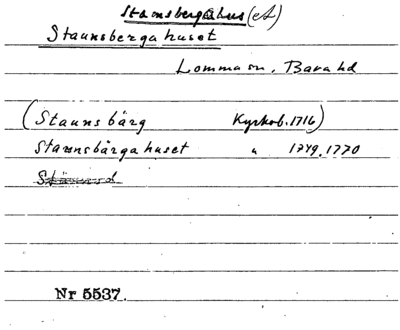 Stamsbergahus (et)
Staunsbergahuset
Lomma sn, Bara hd
(Stauns bärg Kyrkob. 1716)
Stamnsbärgahuset " 1749, 1770
Nr 5537.